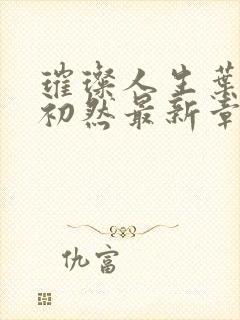 璀璨人生叶
初然最新章
仇富